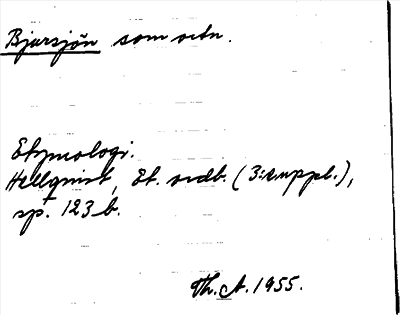 Bjärsjön som ortn.
Etymologi.
Hellquist, Et. ordb. (3:e uppl.),
sp. 123 b.
Th. A. 1955.